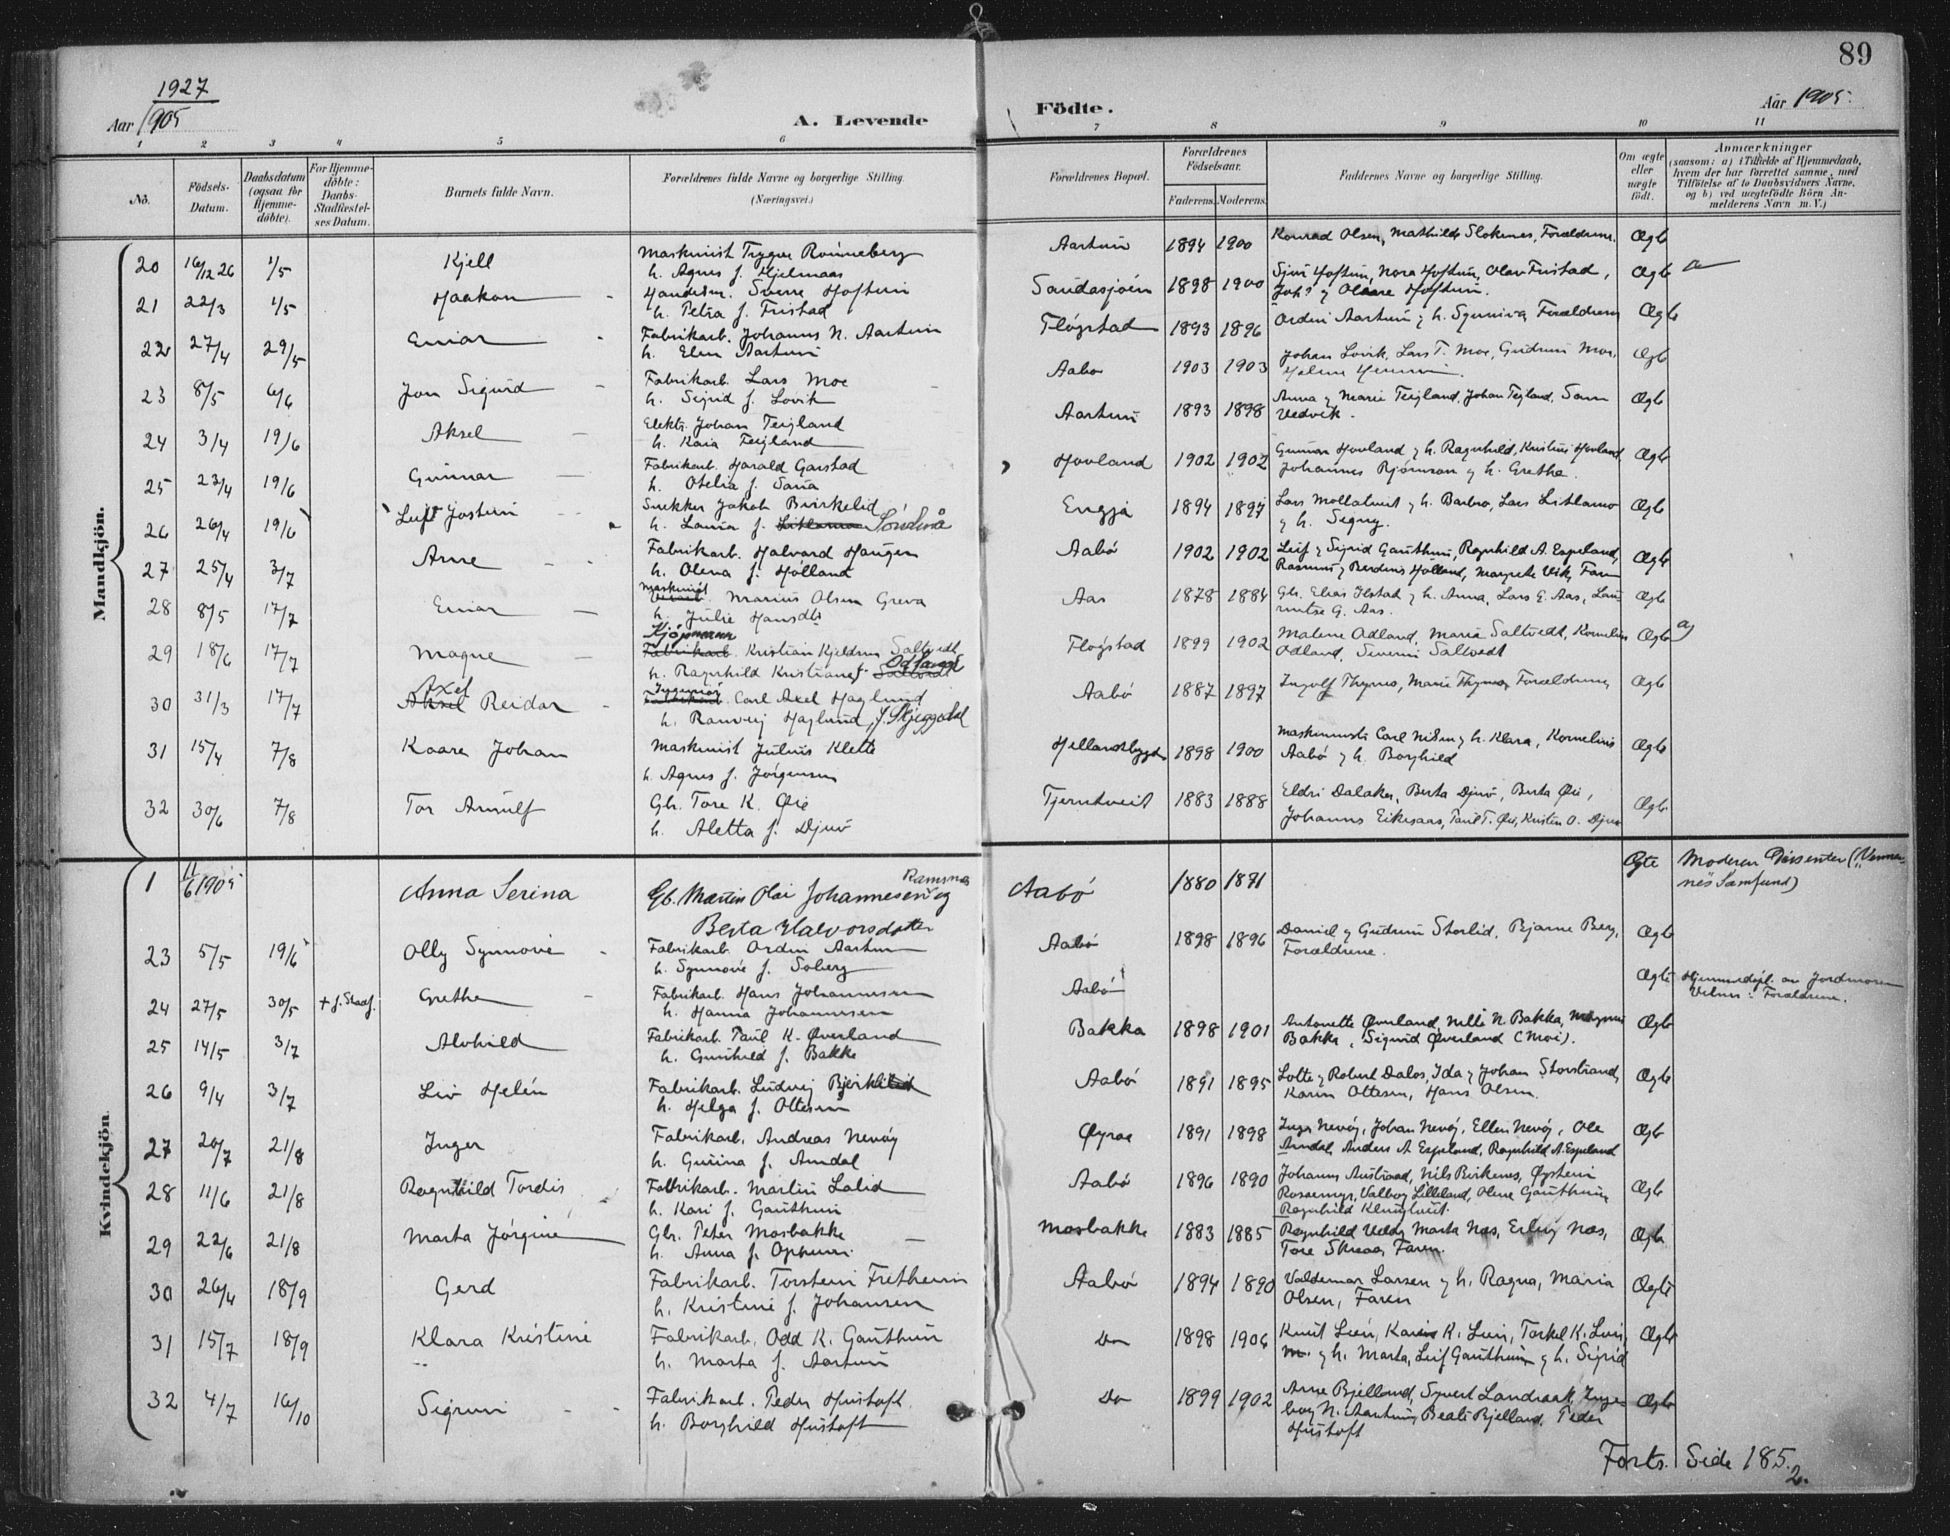 89
1927
Aar 1905
A. Levende
Födte.
Aar 1905.
1 2 3 4 5 6 7 8 9 10 11
No.
Födsels-
Datum.
Daabsdatum
(ogsaa for
Hjemme-
döbte).
For Hjemme-
döbte:
Daabs-
Stadfæstel-
ses Datum.
Barnets fulde Navn.
Forældrenes fulde Navne og borgerlige Stilling.
(Næringsvei.)
Forældrenes Bopæl.
Forældrenes
Födselsaar.
Faderens. Moderens.
Faddernes Navne og borgerlige Stilling.
Om ægte
eller
uægte
födt.
Anmærkninger
(saasom: a) i Tilfælde af Hjemmedaab,
hvem der har forrettet samme, med
Tilföielse af to Daabsvidners Navne,
og b) ved uægtefödte Börn An-
melderens Navn m. V.)
Mandkjön.
20 16/12 26 1/5 Kjell Maskinist Trygve Rönneberg
h. Agnes f. Hjelmaas
Aartun 1894 1900 Konrad Olsen, Mathilde Slokenes, Forældrene. Ægte
21 22/3 1/5 Haakon Handelsm. Sverre Hoftun
h. Petra f. Fristad
Saudasjøen 1898 1900 Hoftun, Nora Hoftun, Olav Fristad,
Hoftun. Ægte
22 27/4 29/5 Einar Fabrikarb. Johannes N. Aartun
h. Elen Aartun
Fløgstad 1893 1896 Orden Aartun og h. Synniva, Forældrene Ægte
23 8/5 6/6 Jon Sigurd Fabrikarb. Lars Moe
h. Sigrid f. Lovik
Aabø 1903 1903 Johan Lovik, Lars T. Moe, Gudrun Moe, Ægte
24 3/4 19/6 Aksel Elektr. Johan Teigland
h. Kaia Teigland
Aartun 1893 1898 Anna og Marie Teigland, Johan Teigland,
Vedvik. Ægte
25 23/4 19/6 Gunnar Fabrikarb. Harald Garstad
h. Otelia f.
Hovland 1902 1902 Gunnar Hovland og h. Ragnhild, Kristine Hovland,
Johannes Bjørnson og h. Grethe. Ægte
26 26/4 19/6 Leif Jostein Snekker Jakob Birkelid
h. Laura f.
Engja 1894 1897 Lars Mollatveit og h. Barbro, Lars Litlamo
og h. Signy. Ægte
27 25/4 3/7 Arne Fabrikarb. Halvard Haugen
h. Olena f. Hølland
Aabø 1902 1902 Leif og Sigrid Gauthun, Ragnhild A. Espeland,
Rasmus og Berdines Hølland, Margrete Vik, Faren Ægte
28 8/5 17/7 Einar Maskinist Marius Olsen Greva
h. Julie Hansdtr
Aas 1878 1884 Gbr. Elias Ilstad og h. Anna, Lars G. Aas, Lau-
ritse G. Aas. Ægte
29 18/6 17/7 Magne Kjøpmann
Fabrikarb. Kristian Kjeldsen Saltvedt
h. Ragnhild Kristiane f. Odland
Fløgstad 1899 1902 Malene Odland, Maria Saltvedt, Kornelius
Odland, Severin Saltvedt Ægte
30 31/3 17/7 Axel
Aksel Reidar Ingeniør
Fabrikarb. Carl Axel Haglund
h. Ranveig Haglund, f. Skjeggedal
Aabø 1887 1897 Ingolf Thynes, Marie Thynes, Forældrene Ægte
31 15/4 7/8 Kaare Johan Maskinist Julius Klette
h. Agnes f. Jørgensen
Hellandsbygd 1898 1900 Maskinmester Carl Nilsen og h. Klara, Kornelius
Aabø og h. Borghild Ægte
32 30/6 7/8 Tor Arnulf Gbr. Tore K. Øie
h. Aletta f. Djuv
Tjerntveit 1883 1888 Eldri Dalaker, Berta Djuv, Berta Øie,
Johannes Eikesaas, Paul T. Øie, Kristen O. Djuv Ægte
Kvindekjön.
1 11/6 1905 Anna Serina Gb. Martin Olai Johannesen Ramsnes og
Berta Halvorsdatter
Aabø 1880 1881 Ægte Moderen Dissenter ("Venner-
nes Samfund)
23 5/5 19/6 Olly Synnøve Fabrikarb. Orden Aartun
h. Synnøve f. Soberg
Aabø 1898 1896 Daniel og Gudrun Storlid, Bjarne Berg,
Forældrene. Ægte
24 27/5 30/5 + f. Stadf. Grethe Fabrikarb. Hans Johannessen
h. Hanna Johannesen
Aabø Ægte Hjemmedøpt av Jordmoren
Forældrene.
25 14/5 3/7 Alvhild Fabrikarb. Paul K. Øverland
h. Gunhild f. Bakka
Bakka 1898 1901 Antonette Øverland, Nelle N. Bakka, Magnus
Bakka, Sigurd Øverland (Moi). Ægte
26 9/4 3/7 Liv Helén Fabrikarb. Ludvig Bjerkelid
h. Helga f. Ottesen
Aabø 1891 1895 Lotte og Robert Dalos, Ida og Johan Storstrand,
Karen Ottesen, Hans Olsen. Ægte
27 20/7 21/8 Inger Fabrikarb. Andreas Nevøy
h. Gurina f. Amdal
Øyrae 1891 1898 Inger Nevøy, Johan Nevøy, Ellen Nevøy, Ole
Amdal, Anders A. Espeland, Ragnhild A. Espeland Ægte
28 11/6 21/8 Ragnhild Tordis Fabrikarb. Martin Lalid
h. Kari f. Gauthun
Aabø 1896 1890 Johannes Austraad, Nils Birkenes, Øystein
Rossemyr, Valborg Lilleland, Olene Gauthun,
Ragnhild Klungtveit. Ægte
29 22/6 21/8 Marta Jørgine Gbr. Peter Mosbakka
h. Anna f.
Mosbakka 1883 1885 Ragnhild Marta Næs, Erling Næs,
Tore Skraa, Faren. Ægte
30 26/4 18/9 Gerd Fabrikarb. Torstein Fretheim
h. Kristine f. Johansen
Aabø 1894 1890 Valdemar Larsen og h. Ragna, Maria
Olsen, Faren Ægte
31 15/7 18/9 Klara Kristine Fabrikarb. Odd K. Gauthun
h. Marta f. Aartun
Do 1898 1906 Knut Lien, Karine K. Lien, Torkel K. Lien
og h. Marta, Leif Gauthun og h. Sigrid Ægte
32 4/7 16/10 Sigrun Fabrikarb. Peder Hustoft.
h. Borghild Hustoft
Do 1899 1902 Arne Bjelland, Syvert Landraak, Inge-
borg N. Aartun, Beate Bjelland, Peder
Hustoft Ægte
Forts. Side 185.